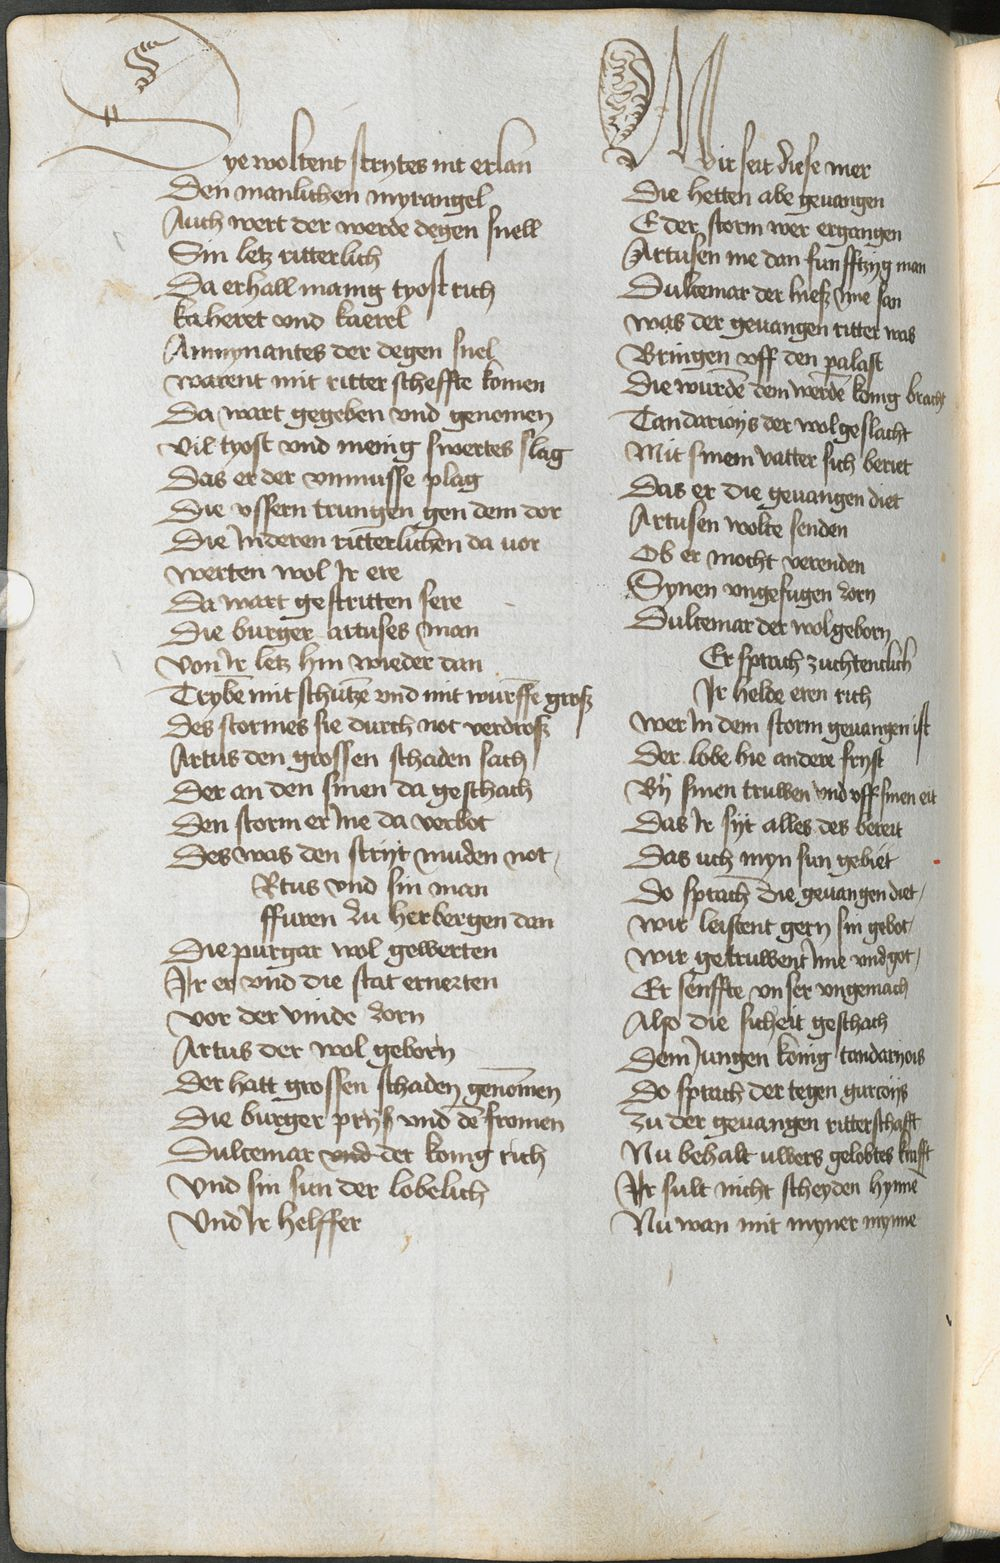 Sye woltent strytes nit erlan
Den manlichen myrangel
Auch wert der werde degen snell
Sin letz ritterlich
Da erhall manig tyost rich
kaheret vnd kaerel
Amnynantes der degen snel
warent mit ritter scheffte komen
Da wart gegeben vnd genomen
vil tyost vnd menig swertes slag
Das er der vnmusse plag
Die vssern trungen gen dem dor
Die Inderen ritterlichen da vor
werten wol Ir ere
Da wart gestritten sere
Die burger artuses man
von Ir letz hin wieder dan
Trybē mit schutzē vnd mit wurffē groß
Des stormes sie durch not verdroß
Artus den grossen schaden sach
Der an den sinen da geschach
Den storm er Ine da verbot
Des was den strijt muden not
Rtus vnd sin man
ffuren zu herbergen dan
Die purgar wol gewerten
Ir er vnd die stat ernerten
vor der vinde zorn
Artus der wol geborn
Der hatt grossen schaden genomen
Die burger prys vnd dē fromen
Dulcemar vnd der konig rich
Vnd sin sun der lobelich
Vnd Ir helffer
Wir seit diese mer
Die hetten abe geuangen
E der storm wer ergangen
Artusen me dan funfftzyg man
Dulcemar der hieß Ime san
was der geuangen ritter was
Bringen vff den palast
Die wurdē dem werdē konig bracht
Tandarioys der wol geslacht
Mit sinem vatter sich beriet
Das er die geuangen diet
Artusen wolte senden
Ob er mocht verenden
Synen vngefugen zorn
Dulcemar der wolgeborn
Er sprach zuchtenclich
Ir helde eren rich
wer In dem storm geuangen ist
Der lobe hie andere frist
By sinen truwen vnd vff sinen eit
Das Ir sijt alles des bereit
Das uch myn sun gebiet
Do sprach die geuangen diet
wir leistent gern sin gebot
wir getruwent Ime vnd got
Er senffte vnser vngemach
Also die sicheit geschach
Dem Jungen konig tandarnois
Do sprach der tegen gurcoys
Zu der geuangen ritterschafft
Nu behalt uwers gelobtes krafft
Ir sult nicht scheyden hynnē
Nu wan mit myner mynne